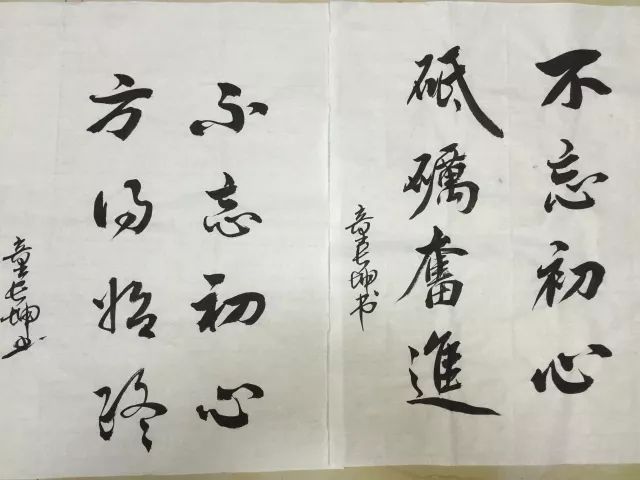 不忘初心
砥礪奮進
童长坤书
不忘初心
方得始终
童长坤书